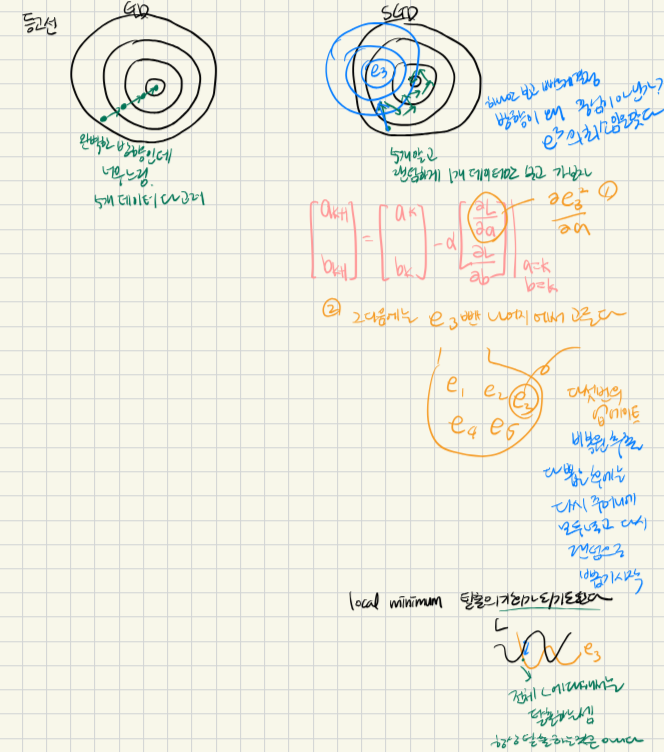 등고선
GD
완벽한 방향인데
너무 느림.
5개 데이터 다 고려
SGD
e3
방향이 왜 중심이 아닌가?
5개 말고
랜덤하게 1개 데이터만 보고 가보자
[a_{k+1} b_{k+1}] = [a_k b_k] - α [∂L/∂a ∂L/∂b] | a=k b=k
∂e_3^2/∂a ①
② 그다음에는 e3 뺀 나머지에서 고른다
e1 e2 e3
e4 e5
다섯번의
업데이트
비복원 추출
다 뽑은 후에는
다시 주머니에
모두 넣고 다시
랜덤으로
뽑기시작
local minimum 탈출의 기회가 되기도한다
L
e3
전체 L에 대해서는
탈출하는셈
항상 탈출하는것은 아니다